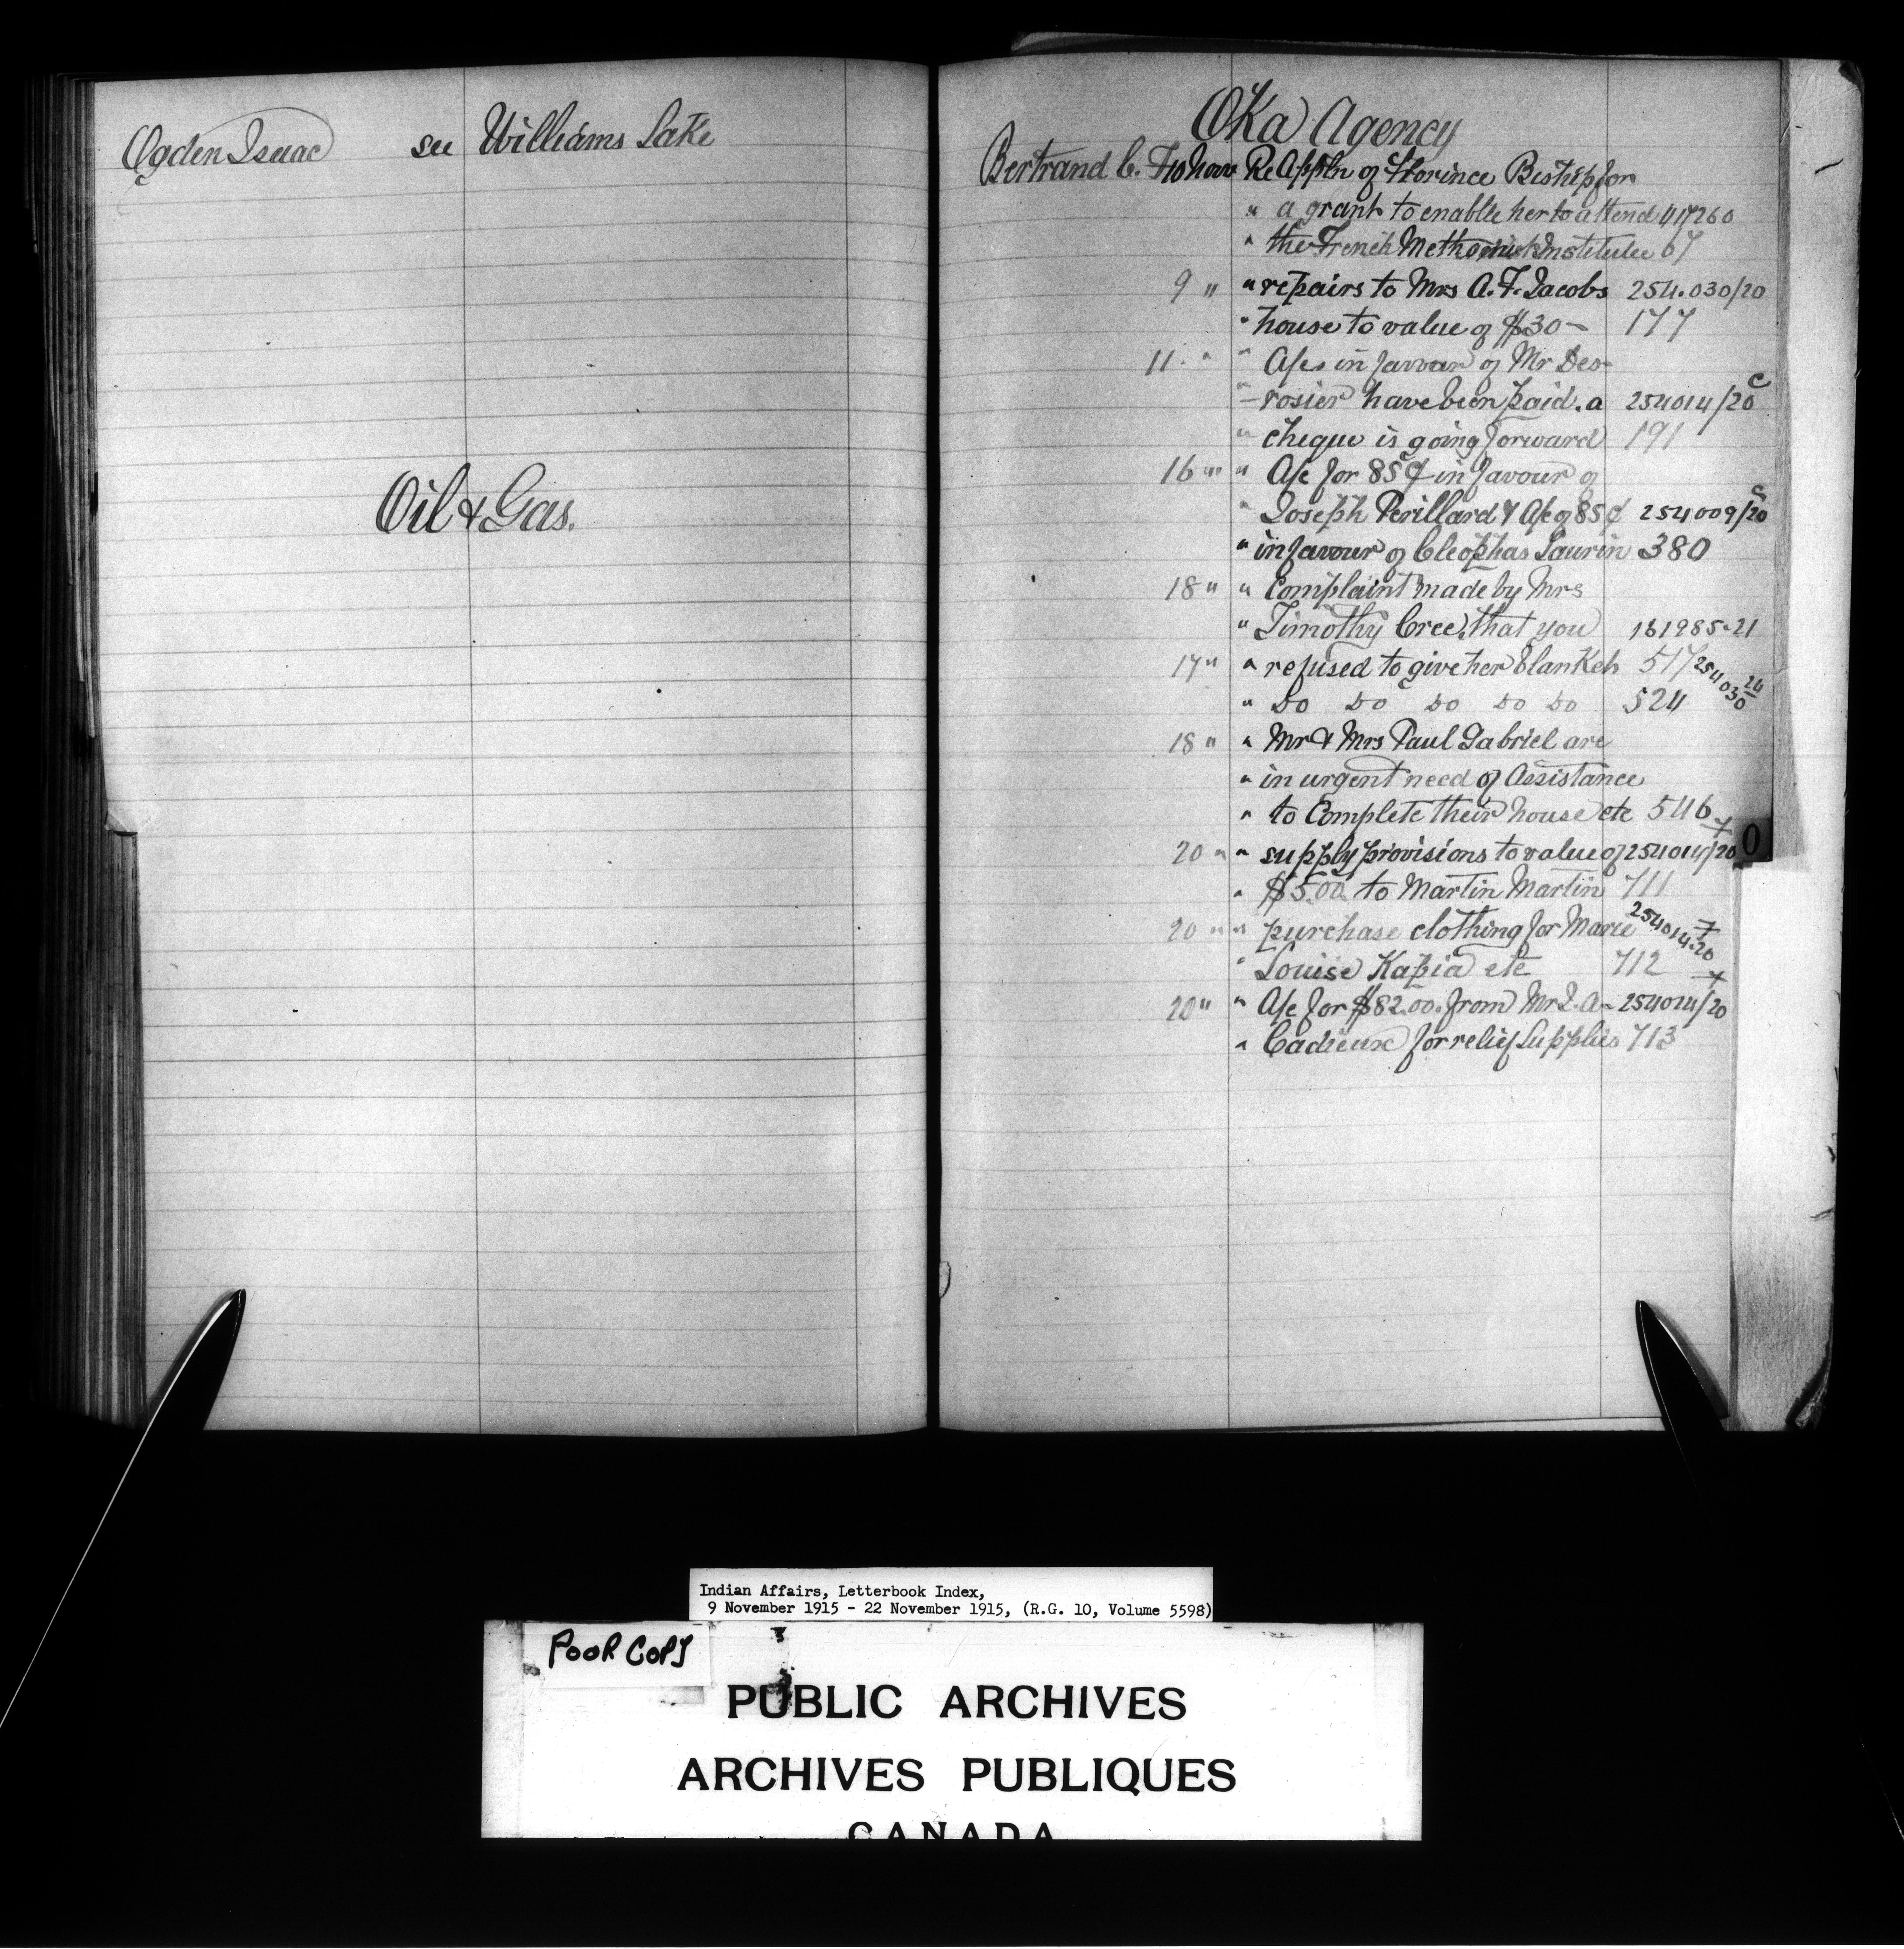 Ogden Isaac see Williams Lake
Oil & Gas.
Oka Agency
Bertrand C. F. 10 Nov Re Appln of Florince Bishop for
" a grant to enable her to attend 417260
" the French Methodist Institute 67
9 " " repairs to Mrs A. F. Jacobs 254.030/20
" house to value of $30 - 177
11 " " A/cs in favour of Mr Des-
" - rosier have been paid. a 254014/20 C
" cheque is going forward 191
16 " " A/c for 85¢ in favour of
" Joseph Perillard & A/c of 85¢ 254009/20 C
" in favour of Cleophas Laurin 380
18 " " Complaint made by Mrs
" Timothy Cree, that you 161985-21
17 " " refused to give her blankets 517 254030 24
" Do Do Do Do Do 524
18 " " Mr & Mrs Paul Gabriel are
" in urgent need of Assistance
" to Complete their house etc 546
20 " " supply provisions to value of 254014/20 7
" $5.00 to Martin Martin 711
20 " " purchase clothing for Marie 254014-20 7
" Louise Kapia etc 712
20 " " A/c for $82.00. from Mr J. A- 254014/20 7
" Cadieux for relief supplies 713
O
Indian Affairs, Letterbook Index,
9 November 1915 - 22 November 1915, (R.G. 10, Volume 5598)
POOR COPY
PUBLIC ARCHIVES
ARCHIVES PUBLIQUES
CANADA